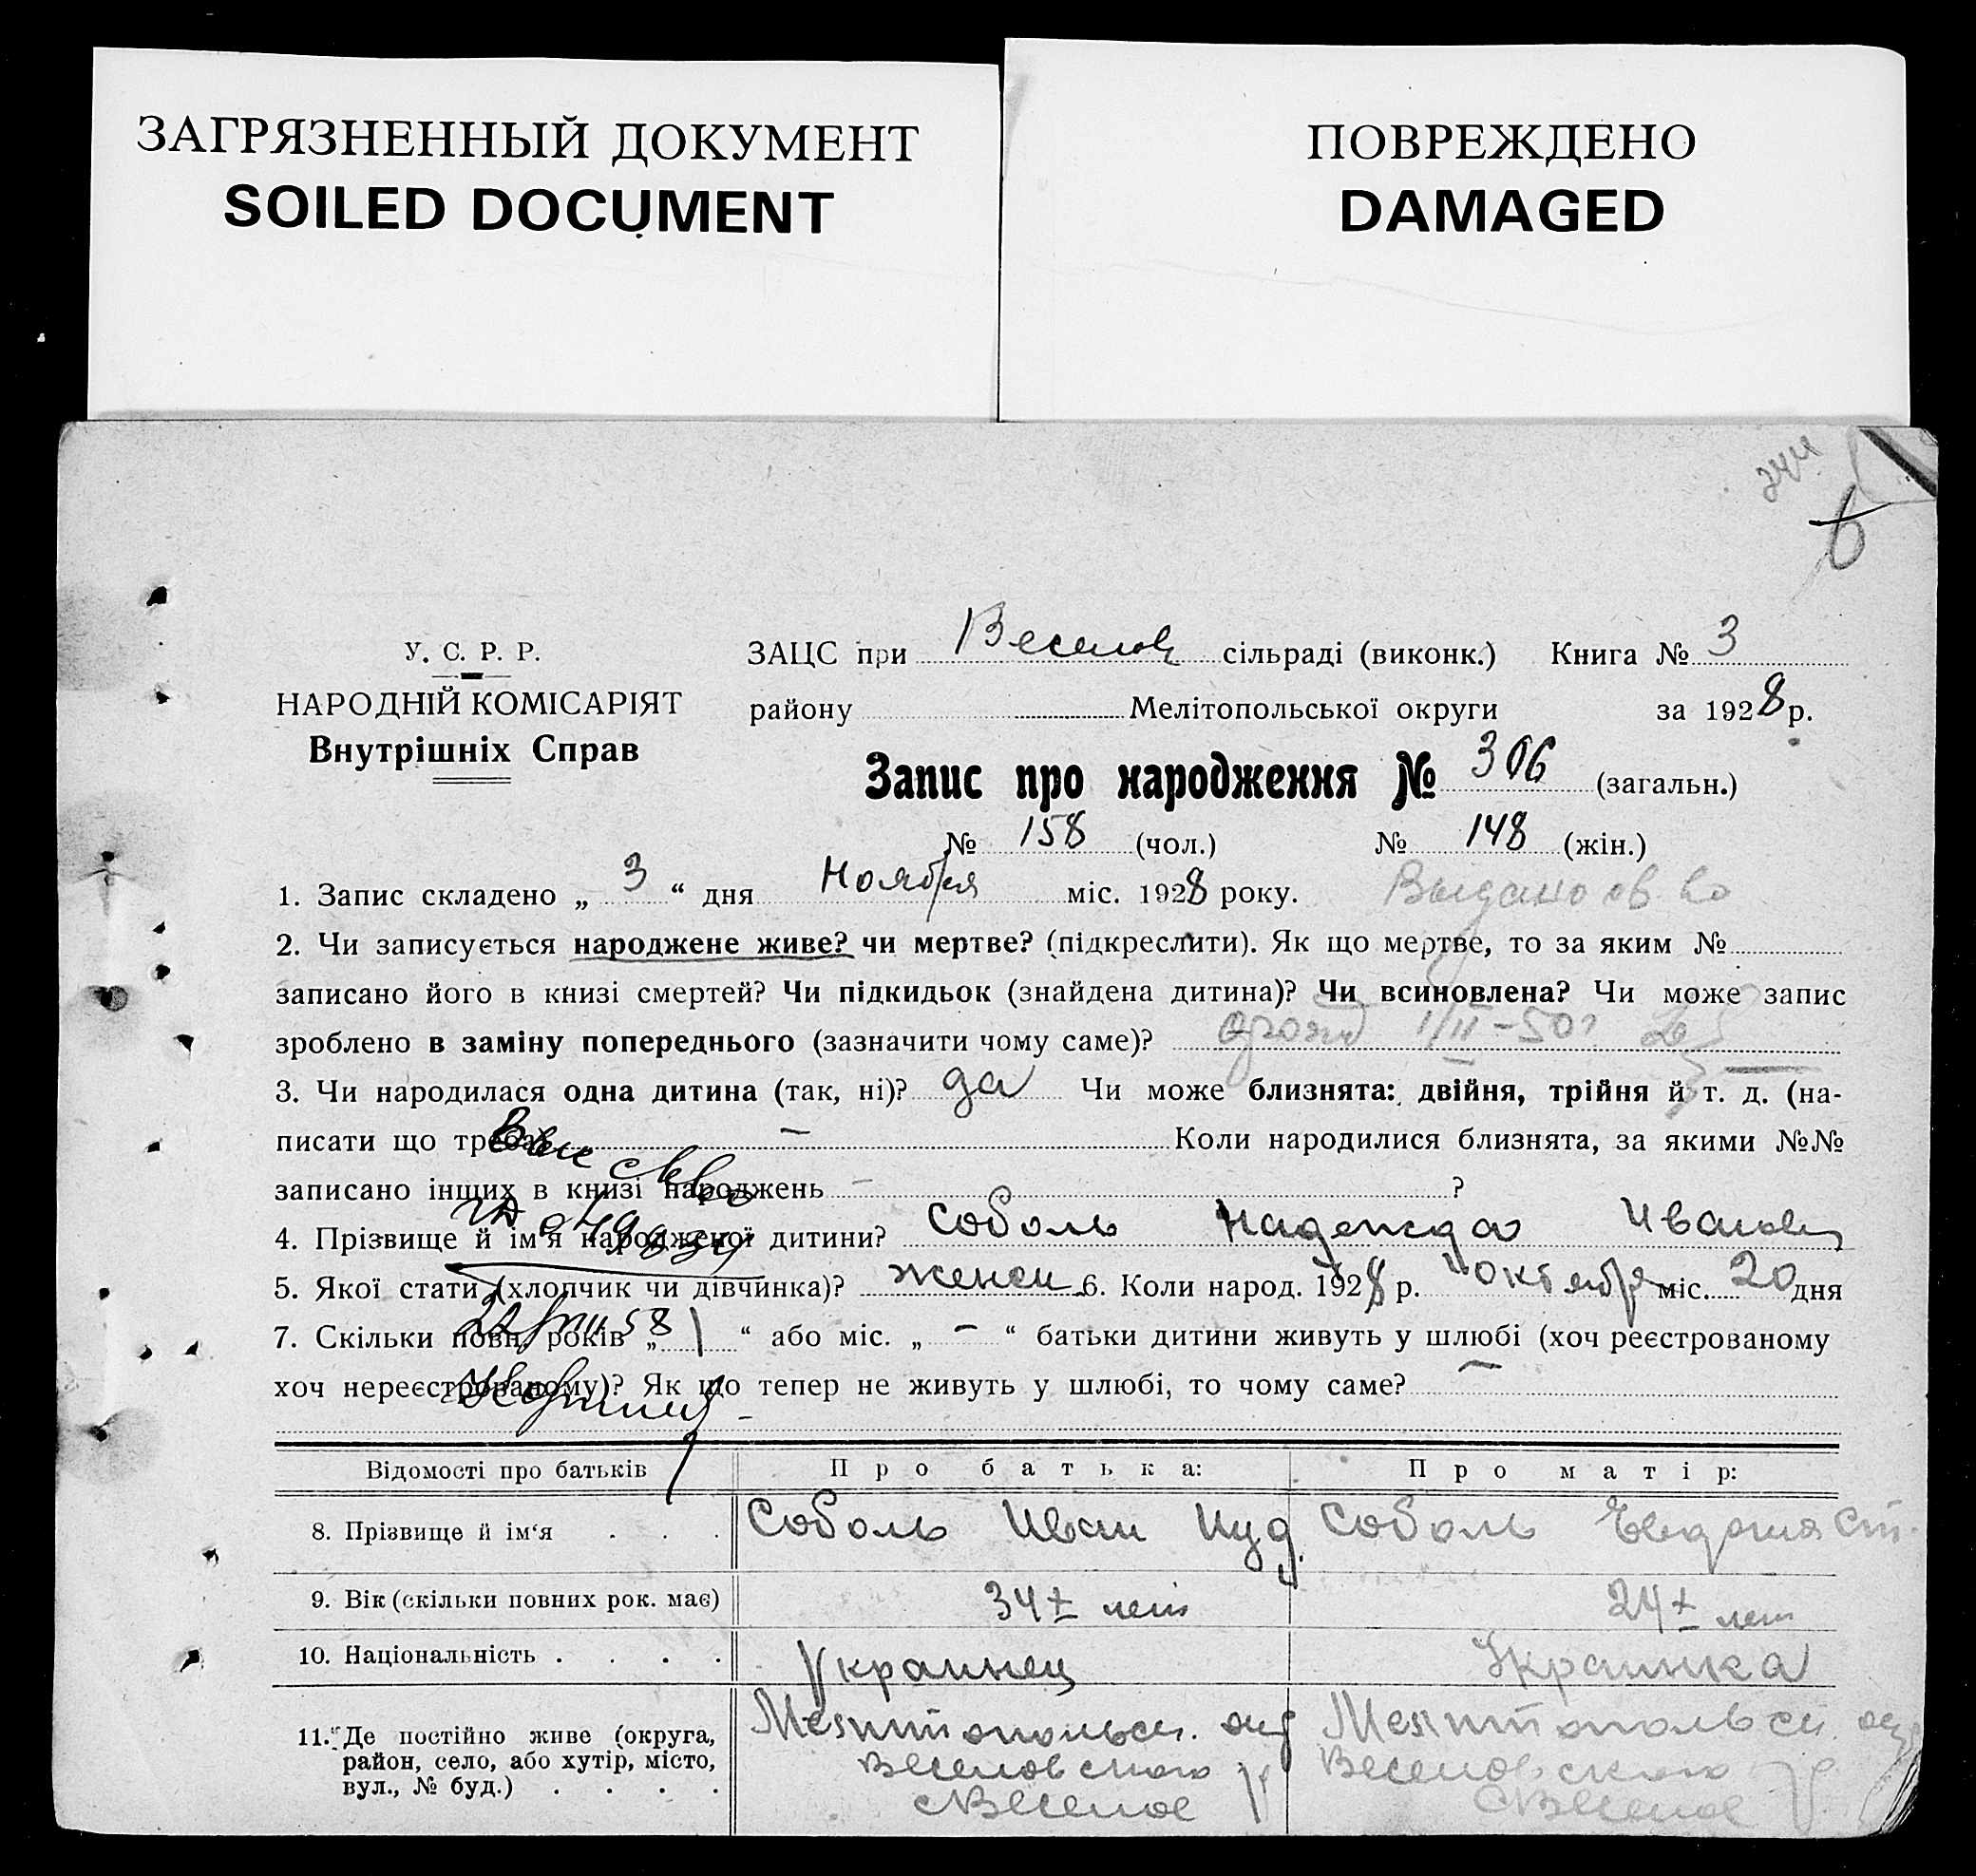 ЗАГРЯЗНЕННЫЙ ДОКУМЕНТ
SOILED DOCUMENT
ПОВРЕЖДЕНО
DAMAGED
6
У. С. Р. Р.
НАРОДНІЙ КОМІСАРІЯТ
Внутрішніх Справ
ЗАЦС при Веселов сільраді (виконк.) Книга № 3
району Мелітопольської округи за 1928 р.
Запис про народження № 306 (загальн.)
№ 158 (чол.) № 148 (жін.)
1. Запис складено „ 3 “ дня Ноября міс. 1928 року. Выдано св во
2. Чи записується народжене живе? чи мертве? (підкреслити). Як що мертве, то за яким №
записано його в книзі смертей? Чи підкидьок (знайдена дитина)? Чи всиновлена? Чи може запис
зроблено в заміну попереднього (зазначити чому саме)? 1/II-50г
3. Чи народилася одна дитина (так, ні)? да Чи може близнята: двійня, трійня й т. д. (на-
писати що треба) — Коли народилися близнята, за якими №№
записано інших в книзі народжень — ?
4. Прізвище й ім'я народженої дитини? Соболь Надежда Иванов
5. Якої стати (хлопчик чи дівчинка)? женск 6. Коли народ. 1928 р. Октября міс. 20 дня
7. Скільки повн. років „ 1 “ або міс. „ — “ батьки дитини живуть у шлюбі (хоч реєстрованому
хоч нереєстрованому)? Як що тепер не живуть у шлюбі, то чому саме? —
Відомості про батьків Про батька: Про матір:
8. Прізвище й ім'я . . . Соболь Иван Соболь Евдокия Ст.
9. Вік (скільки повних рок. має) 34 лет 24 лет
10. Національність . . . . Украинец Украинка
11. Де постійно живе (округа, Мелитопольск. окр Мелитопольск. окр
район, село, або хутір, місто, Веселовского р Веселовского р
вул., № буд.) . . . . с Веселое с Веселое